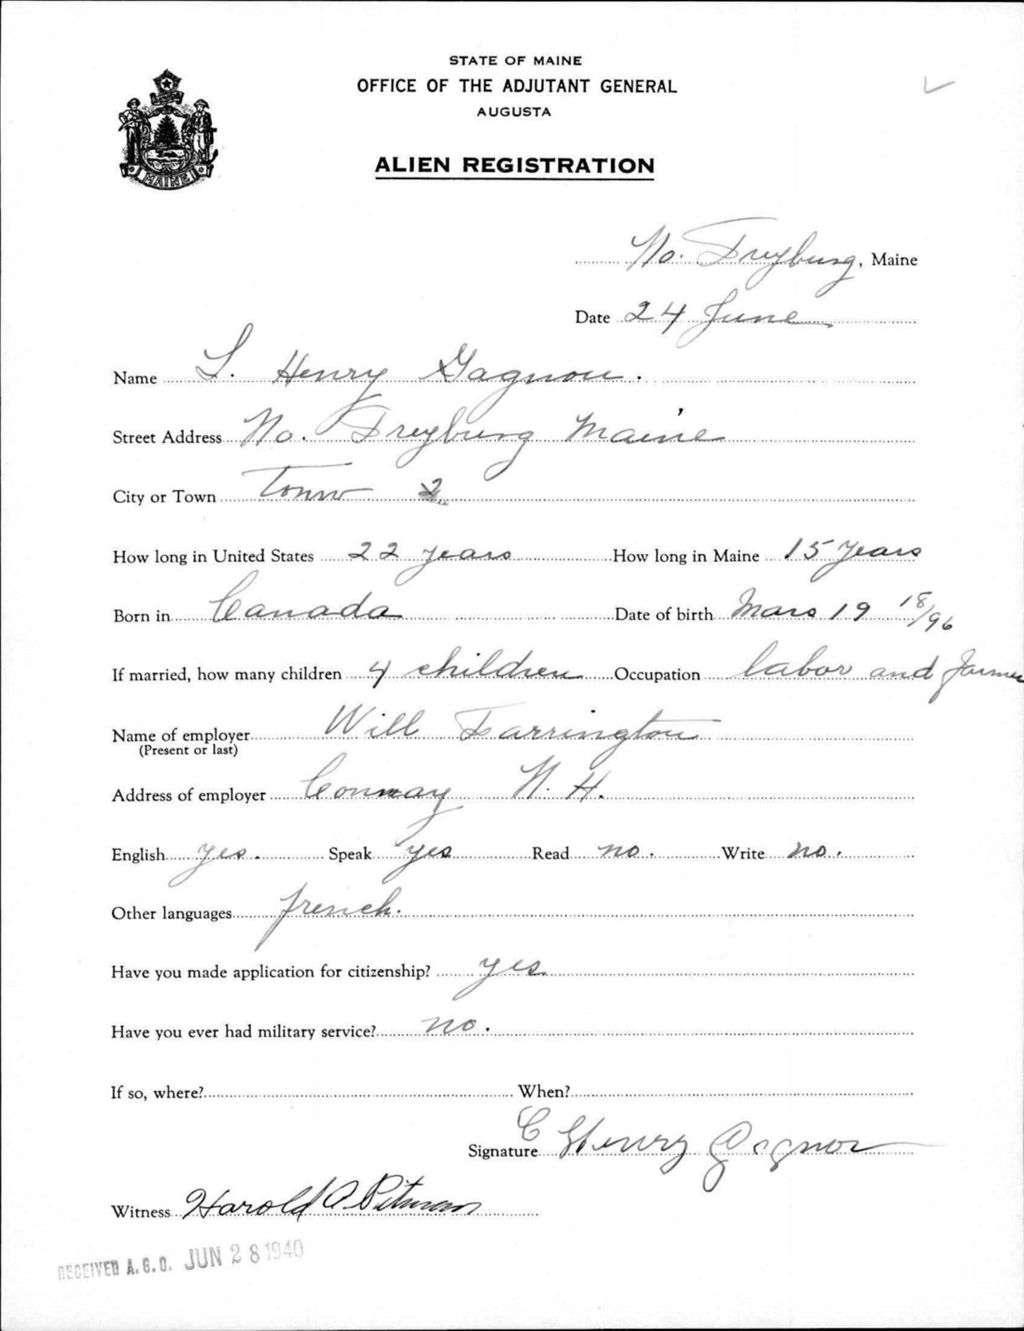 STATE OF MAINE
OFFICE OF THE ADJUTANT GENERAL
AUGUSTA
ALIEN REGISTRATION
MAINE
No. Freyburg, Maine
Date 24 June
Name L. Henry Gagnon.
Street Address No. Freyburg Maine
City or Town Town 2
How long in United States 22 years How long in Maine 15 years
Born in Canada Date of birth Mars 19 18/96
If married, how many children 4 children Occupation labor and farmer
Name of employer Will Farrington
(Present or last)
Address of employer Conway N. H.
English yes. Speak yes Read no. Write no.
Other languages french.
Have you made application for citizenship? yes
Have you ever had military service? no.
If so, where? When?
Signature Henry Gagnon
Witness Harold A Pitman
RECEIVED A. G. O. JUN 28 1940